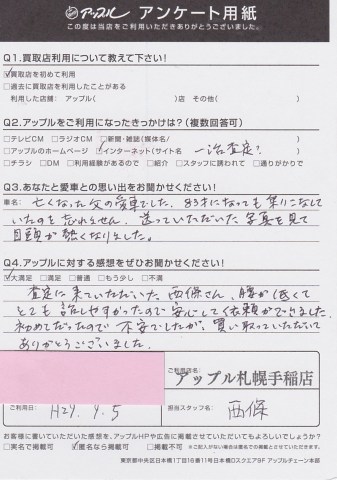 アップル アンケート用紙
この度は当店をご利用いただきありがとうございました。
Q1.買取店利用について教えて下さい!
☑買取店を初めて利用
□過去に買取店を利用したことがある
利用した店舗: アップル( )店 その他( )
Q2.アップルをご利用になったきっかけは?(複数回答可)
□テレビCM □ラジオCM □新聞・雑誌(媒体名/ )
□アップルのホームページ ☑インターネット(サイト名 一括査定? )
□チラシ □DM □利用経験があるので □紹介 □スタッフに誘われて □通りがかりで
Q3.あなたと愛車との思い出をお聞かせください!
車名: 亡くなった父の愛車でした。
いたのを忘れません。送っていただいた写真を見て
目頭が熱くなりました。
Q4.アップルに対する感想をぜひお聞かせください!
☑大満足 □満足 □普通 □もう少し □不満
査定に来ていただいた西條さん、腰が低くて
とても話しやすかったので安心して依頼ができました。
初めてだったので不安でしたが、買い取っていただいて
ありがとうございました。
ご利用店名:
アップル札幌手稲店
ご利用日: H29.4.5
担当スタッフ名: 西條
お客様に書いていただいた感想を、アップルHPや広告に掲載させていただいてもよろしいでしょうか?
□実名で掲載可 ☑匿名なら掲載可 □掲載不可 ※ご記入がない場合は匿名での掲載とさせていただきます。
東京都中央区日本橋1丁目16番11号日本橋Dスクエア9F アップルチェーン本部